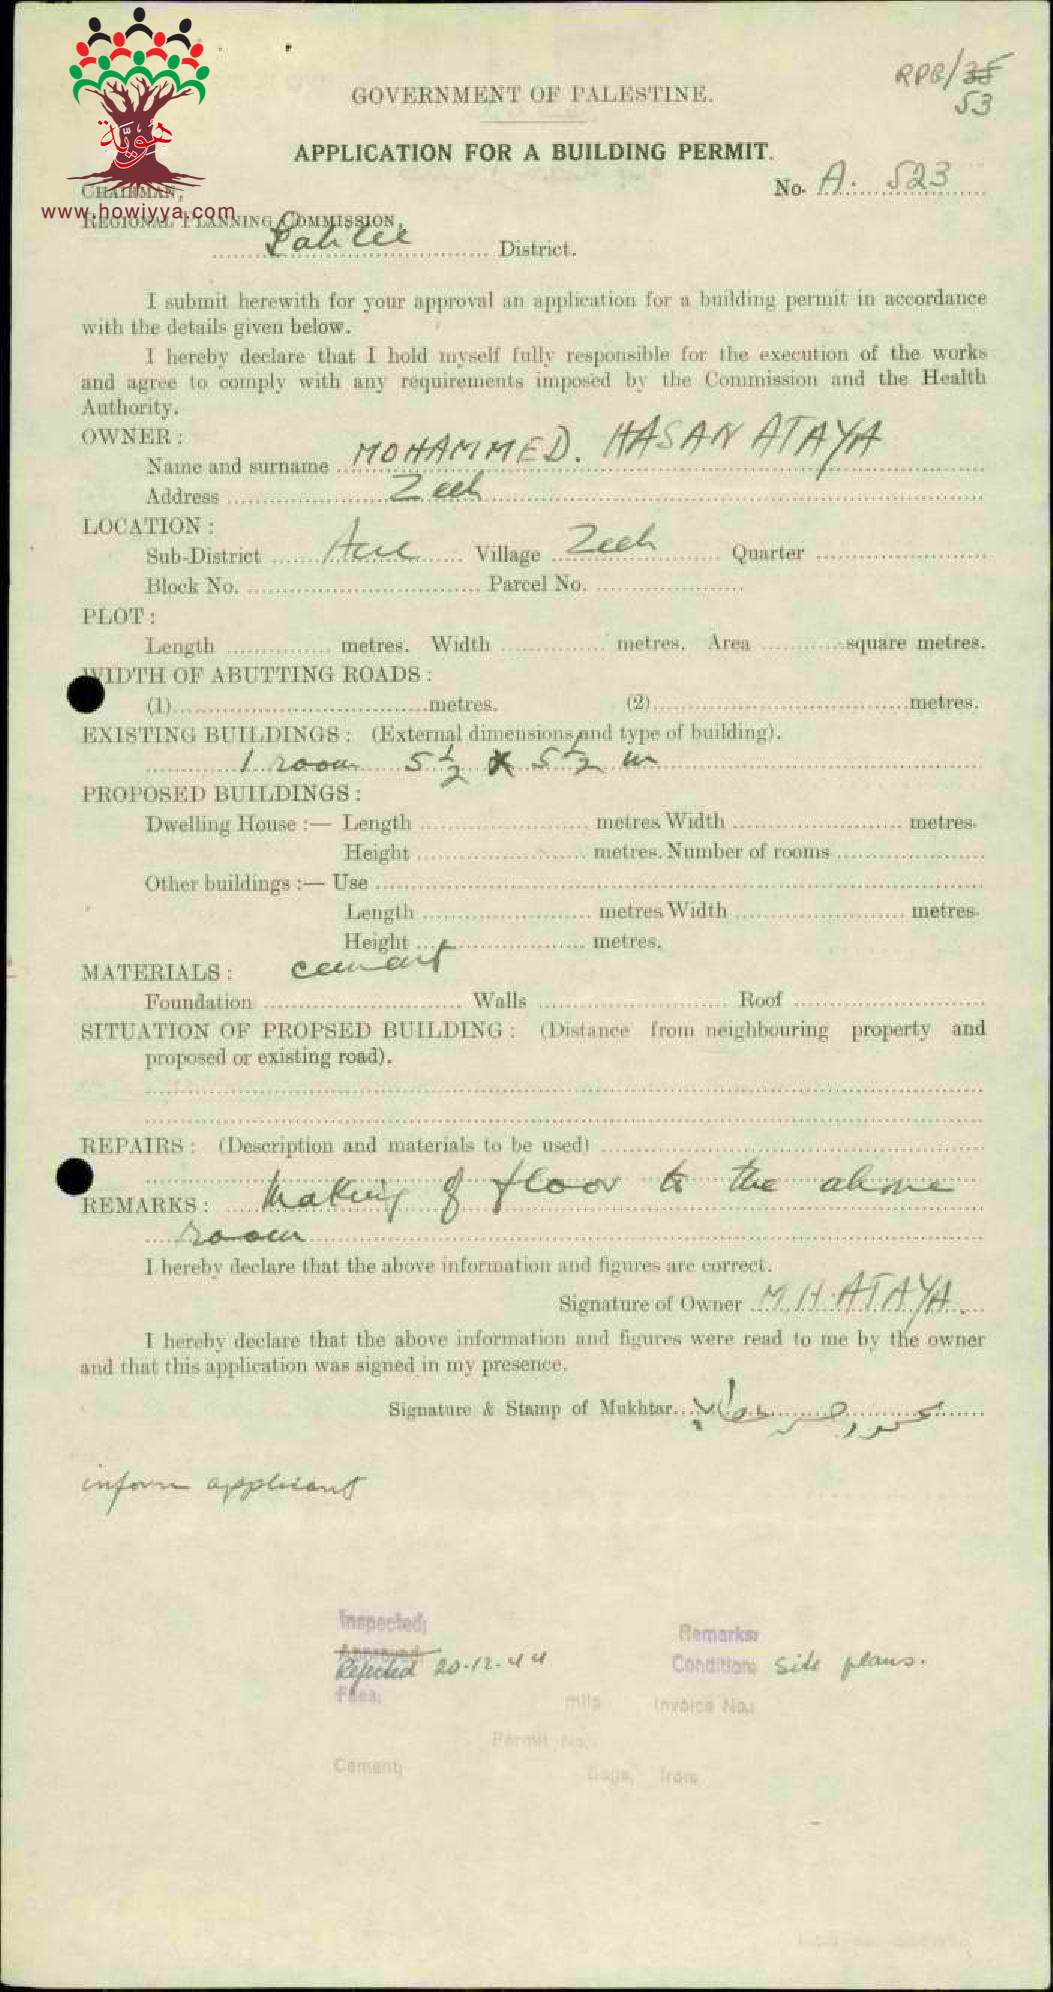 هوية
www.howiyya.com
RPB/35
53
GOVERNMENT OF PALESTINE.
APPLICATION FOR A BUILDING PERMIT.
No. A. 523
CHAIRMAN,
REGIONAL PLANNING COMMISSION,
Galilee District.
I submit herewith for your approval an application for a building permit in accordance
with the details given below.
I hereby declare that I hold myself fully responsible for the execution of the works
and agree to comply with any requirements imposed by the Commission and the Health
Authority.
OWNER :
Name and surname MOHAMMED. HASAN ATAYA
Address Zeeb
LOCATION :
Sub-District Acre Village Zeeb Quarter
Block No. Parcel No.
PLOT :
Length metres. Width metres. Area square metres.
WIDTH OF ABUTTING ROADS :
(1) metres. (2) metres.
EXISTING BUILDINGS : (External dimensions and type of building).
1 room 5 1/2 x 5 1/2 m
PROPOSED BUILDINGS :
Dwelling House :— Length metres Width metres.
Height metres. Number of rooms
Other buildings :— Use
Length metres Width metres.
Height metres.
MATERIALS : cement
Foundation Walls Roof
SITUATION OF PROPSED BUILDING : (Distance from neighbouring property and
proposed or existing road).
REPAIRS : (Description and materials to be used)
REMARKS : Making of floor to the above
room
I hereby declare that the above information and figures are correct.
Signature of Owner M.H. ATAYA.
I hereby declare that the above information and figures were read to me by the owner
and that this application was signed in my presence.
Signature & Stamp of Mukhtar
inform applicant
Inspected; Remarks:
Approved
Rejected 20-12-44 Condition: site plans.
Fees; mils Invoice No.:
Permit No.
Cement; Bags, from